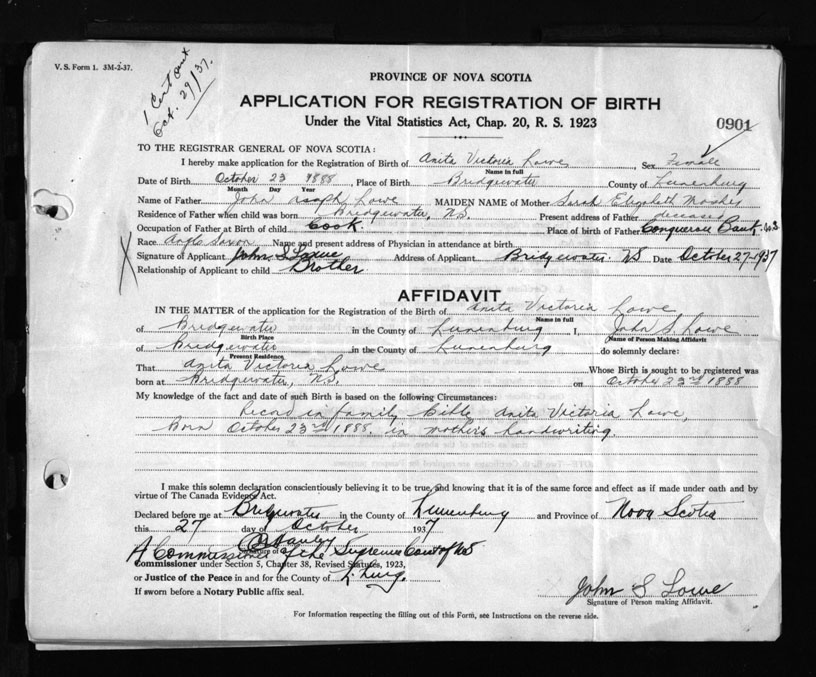 V. S. Form 1. 3M-2-37.
1 Cert sent
Oct. 29/37.
PROVINCE OF NOVA SCOTIA
APPLICATION FOR REGISTRATION OF BIRTH
Under the Vital Statistics Act, Chap. 20, R. S. 1923
0901
TO THE REGISTRAR GENERAL OF NOVA SCOTIA:
I hereby make application for the Registration of Birth of Anita Victoria Lowe Sex Female
Name in full
Date of Birth October 23 1888, Place of Birth Bridgewater County of Lunenburg
Month Day Year
Name of Father John Joseph Lowe MAIDEN NAME of Mother Sarah Elizabeth
Residence of Father when child was born Bridgewater, N.S. Present address of Father deceased
Occupation of Father at Birth of child Cook. Place of birth of Father Conquerall Bank. N.S
Race Anglo Saxon Name and present address of Physician in attendance at birth
Signature of Applicant John S Lowe Address of Applicant Bridgewater. NS Date October 27-1937
Relationship of Applicant to child Brother
AFFIDAVIT
IN THE MATTER of the application for the Registration of the Birth of Anita Victoria Lowe
Name in full
of Bridgewater in the County of Lunenburg I, John S Lowe
Birth Place Name of Person Making Affidavit
of Bridgewater in the County of Lunenburg do solemnly declare:
Present Residence
That Anita Victoria Lowe Whose Birth is sought to be registered was
born at Bridgewater, N.S. on October 23rd 1888
My knowledge of the fact and date of such Birth is based on the following Circumstances:
Record in family Bible Anita Victoria Lowe,
Born October 23rd 1888. in mothers handwriting.
I make this solemn declaration conscientiously believing it to be true, and knowing that it is of the same force and effect as if made under oath and by
virtue of The Canada Evidence Act.
Declared before me at Bridgewater in the County of Lunenburg and Province of Nova Scotia
this 27 day of October 1937
Signature of
A Commissioner of the Supreme Court of NS
Commissioner under Section 5, Chapter 38, Revised Statutes, 1923,
or Justice of the Peace in and for the County of L.burg.
If sworn before a Notary Public affix seal.
John S Lowe
Signature of Person making Affidavit.
For Information respecting the filling out of this Form, see Instructions on the reverse side.